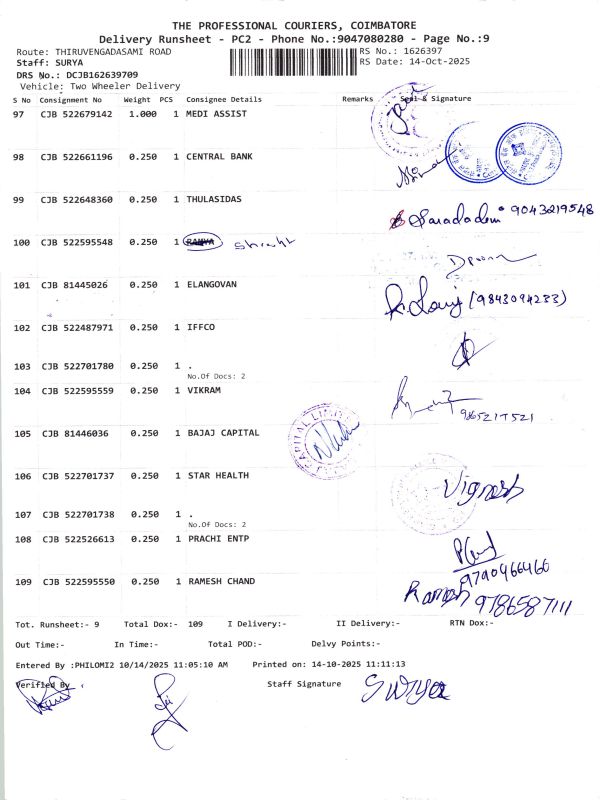 THE PROFESSIONAL COURIERS, COIMBATORE
Delivery Runsheet - PC2 - Phone No.:9047080280 - Page No.:9
Route: THIRUVENGADASAMI ROAD RS No.: 1626397
Staff: SURYA RS Date: 14-Oct-2025
DRS No.: DCJB162639709
Vehicle: Two Wheeler Delivery
S No Consignment No Weight PCS Consignee Details Remarks Seal & Signature
97 CJB 522679142 1.000 1 MEDI ASSIST
98 CJB 522661196 0.250 1 CENTRAL BANK
99 CJB 522648360 0.250 1 THULASIDAS
9043219548
100 CJB 522595548 0.250 1 RAMYA
101 CJB 81445026 0.250 1 ELANGOVAN
(9843094233)
102 CJB 522487971 0.250 1 IFFCO
103 CJB 522701780 0.250 1 .
No.Of Docs: 2
104 CJB 522595559 0.250 1 VIKRAM
105 CJB 81446036 0.250 1 BAJAJ CAPITAL
106 CJB 522701737 0.250 1 STAR HEALTH
Vignesh
107 CJB 522701738 0.250 1 .
No.Of Docs: 2
108 CJB 522526613 0.250 1 PRACHI ENTP
9790466460
109 CJB 522595550 0.250 1 RAMESH CHAND
Ramesh 9786587111
Tot. Runsheet:- 9 Total Dox:- 109 I Delivery:- II Delivery:- RTN Dox:-
Out Time:- In Time:- Total POD:- Delvy Points:-
Entered By :PHILOMI2 10/14/2025 11:05:10 AM Printed on: 14-10-2025 11:11:13
Verified By Staff Signature Surya